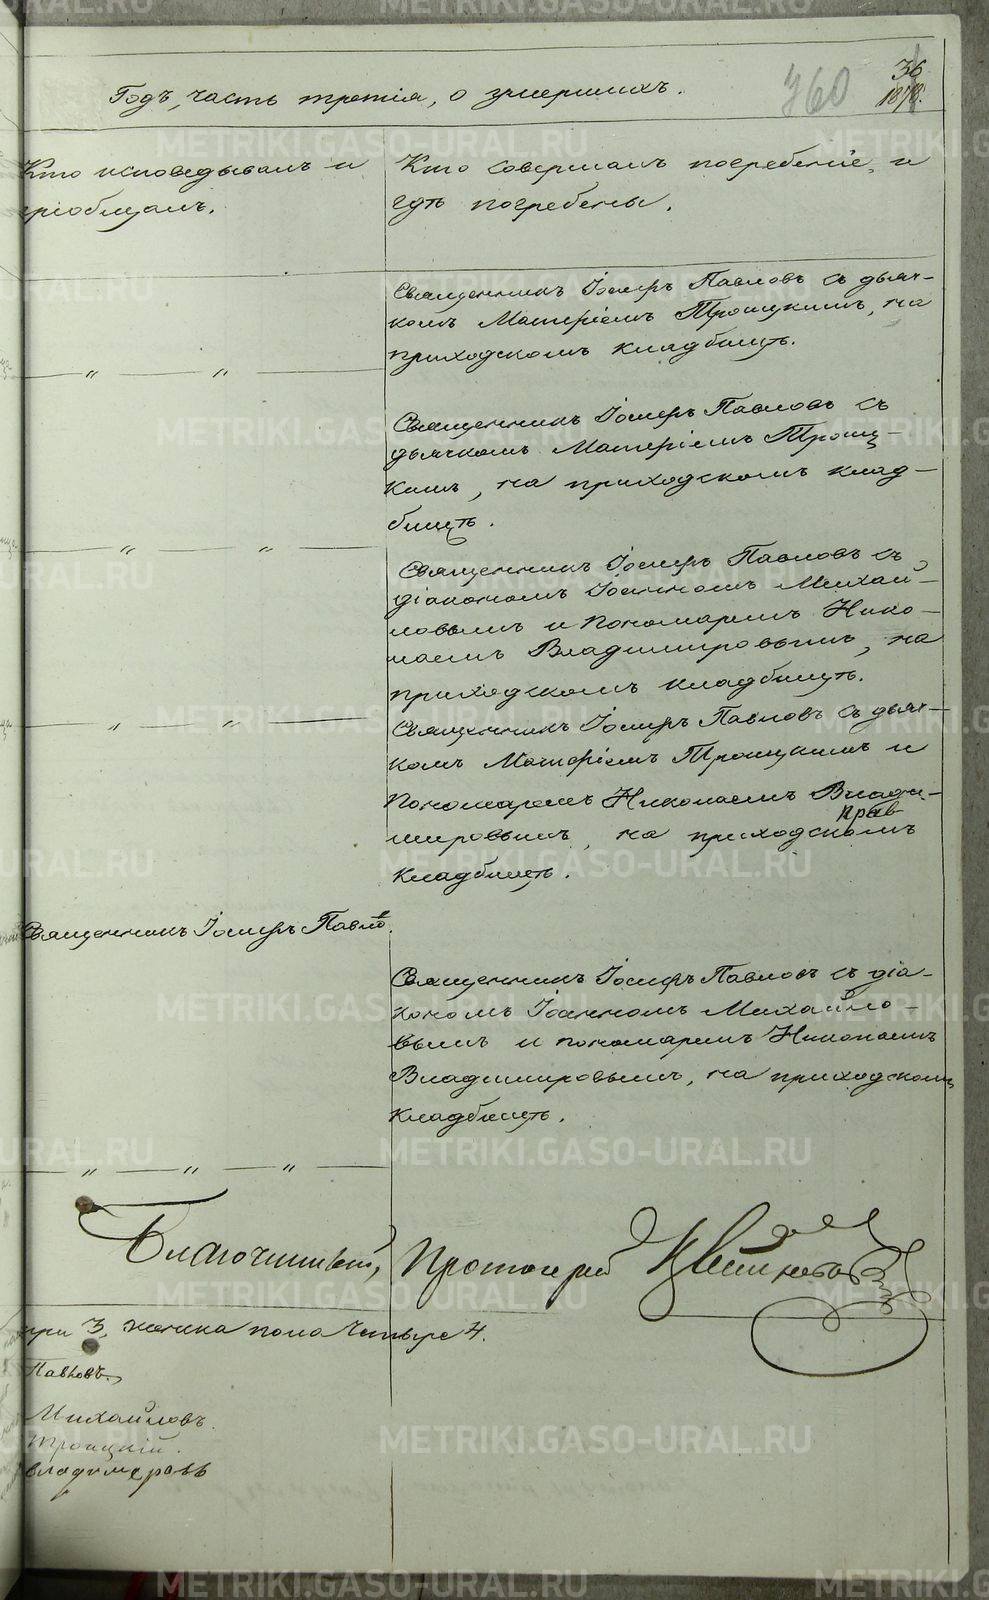 36
1878.
360
Годъ, часть третія, о умершихъ.
Кто исповѣдывалъ и
пріобщалъ.
Кто совершалъ погребеніе, и
гдѣ погребены.
Священникъ Іосифъ Павловъ съ дьяч-
комъ Матѳіемъ Троицкимъ, на
приходскомъ кладбищѣ.
— „ — „ —
Священникъ Іосифъ Павловъ съ
дьячкомъ Матѳіемъ Троиц-
кимъ, на приходскомъ клад-
бищѣ.
— „ — „ —
Священникъ Іосифъ Павловъ съ
діакономъ Іоанномъ Михай-
ловымъ и пономаремъ Нико-
лаемъ Владимировымъ, на
приходскомъ кладбищѣ.
— „ — „ —
Священникъ Іосифъ Павловъ съ дьяч-
комъ Матѳіемъ Троицкимъ и
Пономаремъ Николаемъ Влади-
мировымъ, на приходскомъ
кладбищѣ.
Священникъ Іосифъ Павловъ.
Священникъ Іосифъ Павловъ съ діа-
кономъ Іоанномъ Михайло-
вымъ и пономаремъ Николаемъ
Владимировымъ, на приходскомъ
кладбищѣ.
— „ — „ — „ —
Благочинный, Протоіерей
при 3, женска пола четыре 4.
Павловъ
Михайловъ.
Троицкій.
Владимеровъ
METRIKI.GASO-URAL.RU